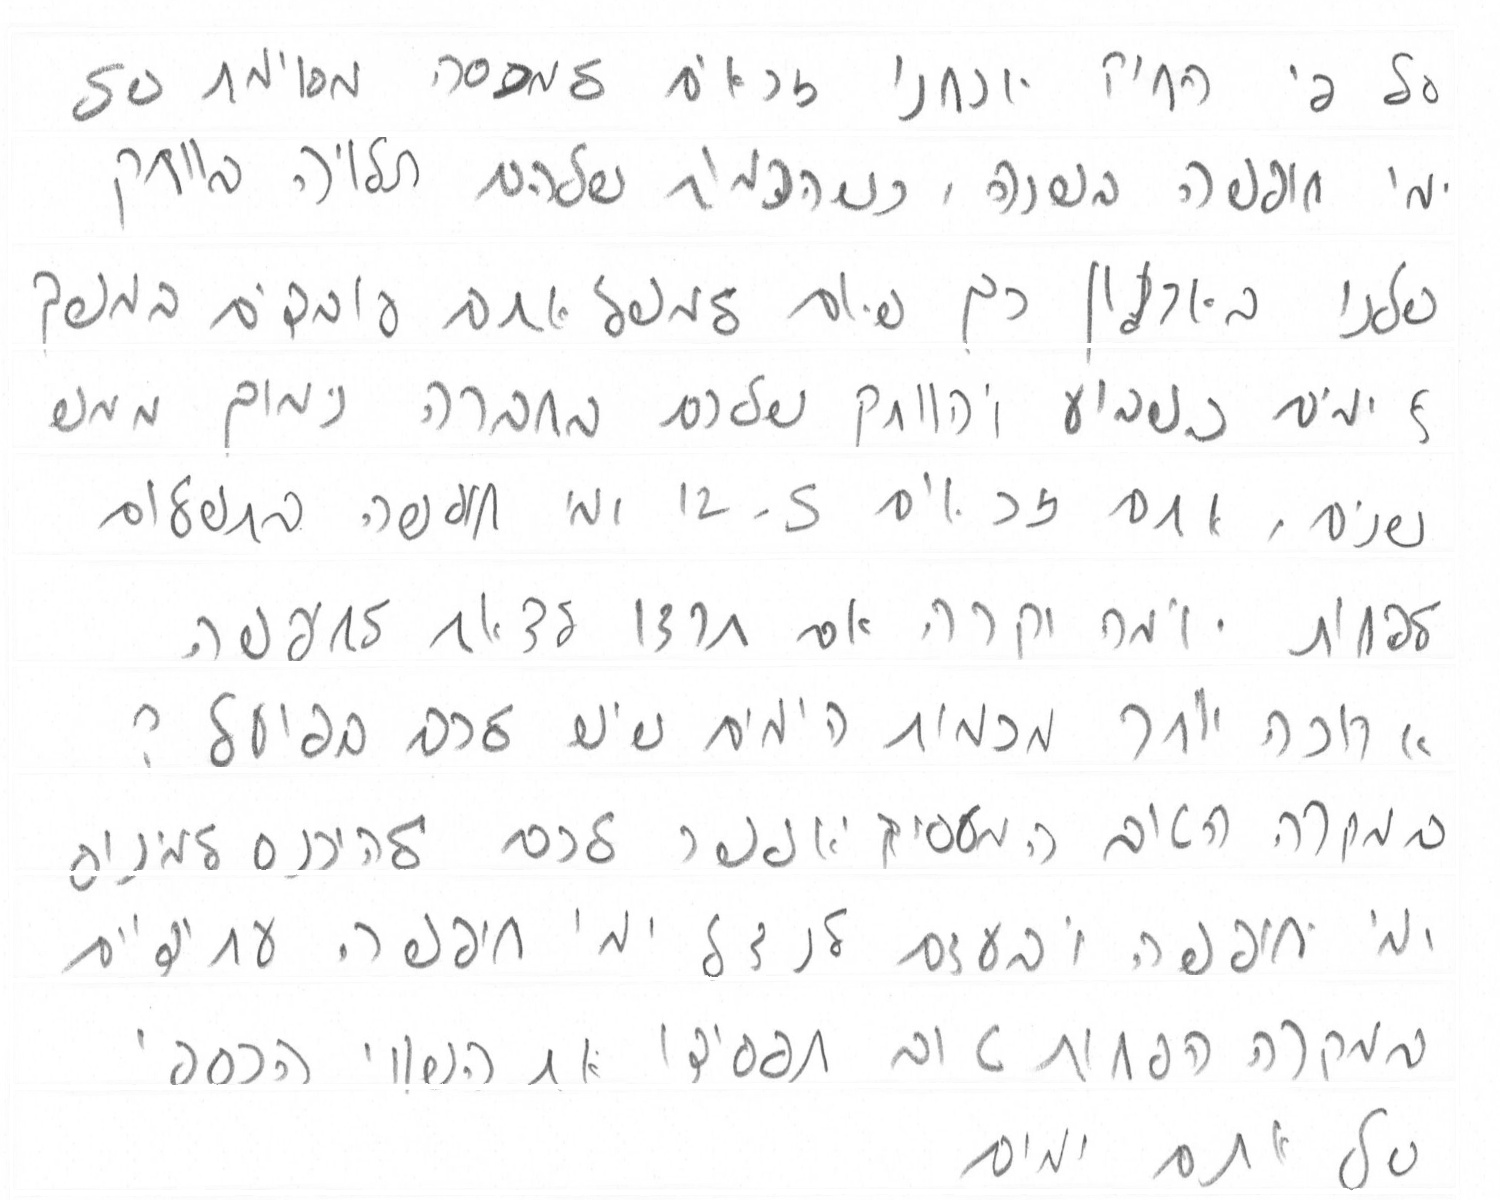 על פי החוק אנחנו זכאים למכסה מסוימת של
ימי חופשה בשנה, כשהכמות שלהם תלויה בוותק
שלנו בארגון כך שאם למשל אתם עובדים במשך
5 ימים בשבוע והוותק שלכם בחברה נמוך ממש
שנים, אתם זכאים ל-12 ימי חופשה בתשלום
לפחות. ומה יקרה אם תרצו לצאת לחופשה
ארוכה יותר מכמות הימים שיש לכם בפועל?
במקרה הטוב המעסיק יאפשר לכם להיכנס למינוס
ימי חופשה ובעצם לנצל ימי חופשה עתידיים
במקרה הפחות טוב תפסידו את השווי הכספי
של אתם ימים